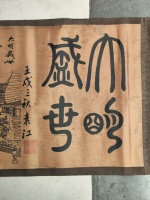 大明
盛世
大明盛世
壬戌三秋袁江